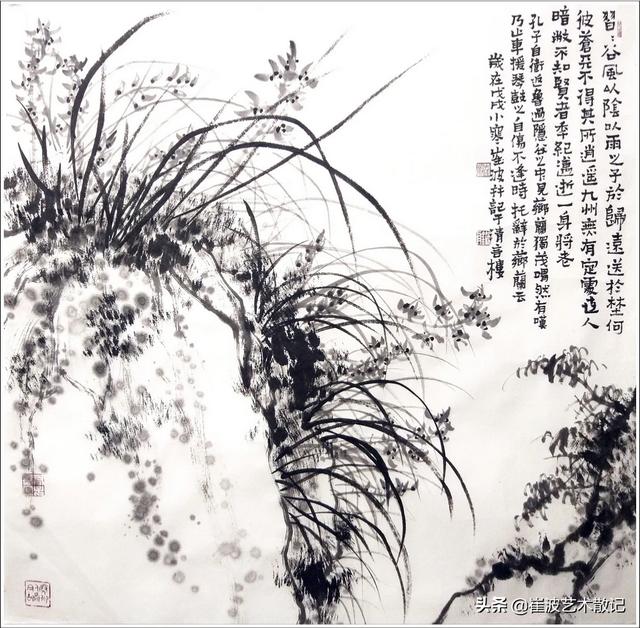 習〻谷風以陰以雨之子於歸遠送於埜何
彼蒼天不得其所逍遥九州無有定處世人
暗蔽不知賢者年紀邁逝一身將老
孔子自衛返魯過隱谷之中見薌蘭獨茂喟然有嘆
乃止車援琴鼓之自傷不逢時托辭於薌蘭云
歲在戊戌小寒崔波并記于清音樓
头条 @崔波艺术散记